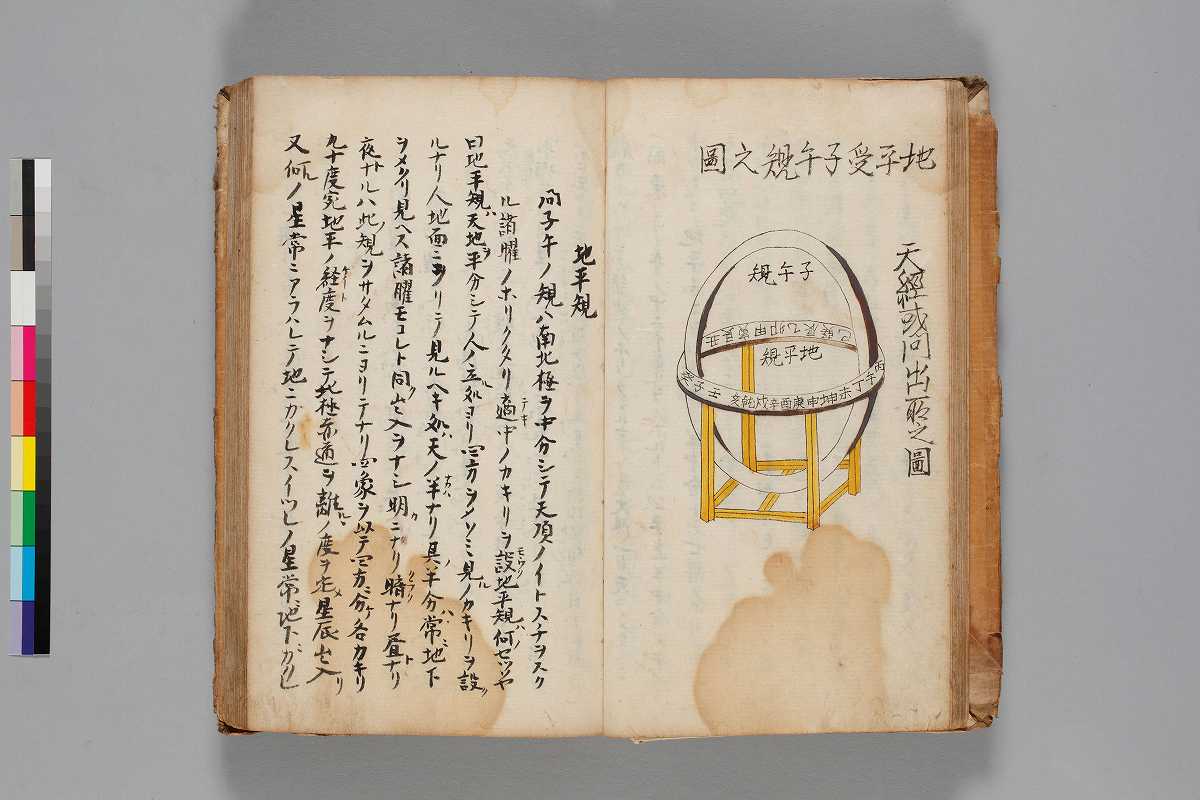 地平受子午規之圖
天經或問出所之圖
子午規
丑艮寅甲卯乙辰巽巳
地平規
丙午丁未坤申庚酉辛戌乾亥壬子癸
地平規
問子午ノ規ハ南北極ヲ中分シテ天頂ノイトスチヲスク
ル諸曜ノホリクタリ適中ノカキリヲ設地平規何セツヤ
曰地平規天地ヲ平分シテ人ノ立処ヨリ四方ヲノソミ見ノカキリヲ設
ルナリ人地面ニヨリテ見ルヘキ処天ノ半ナリ其半分常地下
ヲメクリ見ヘス諸曜モコレト同出入ヲナシ明ニナリ暗ナリ昼ナリ
夜ナルハ此規ヲサタムルニヨリテナリ四象ヲ以テ四方ニ分各カキリ
九十度宛地平ノ経度ヲナシテ北極赤道ヲ離ノ度ヲ定星辰出入
又何ノ星常ニアラハレテ地ニカクレスイツレノ星常地下ニカクレ